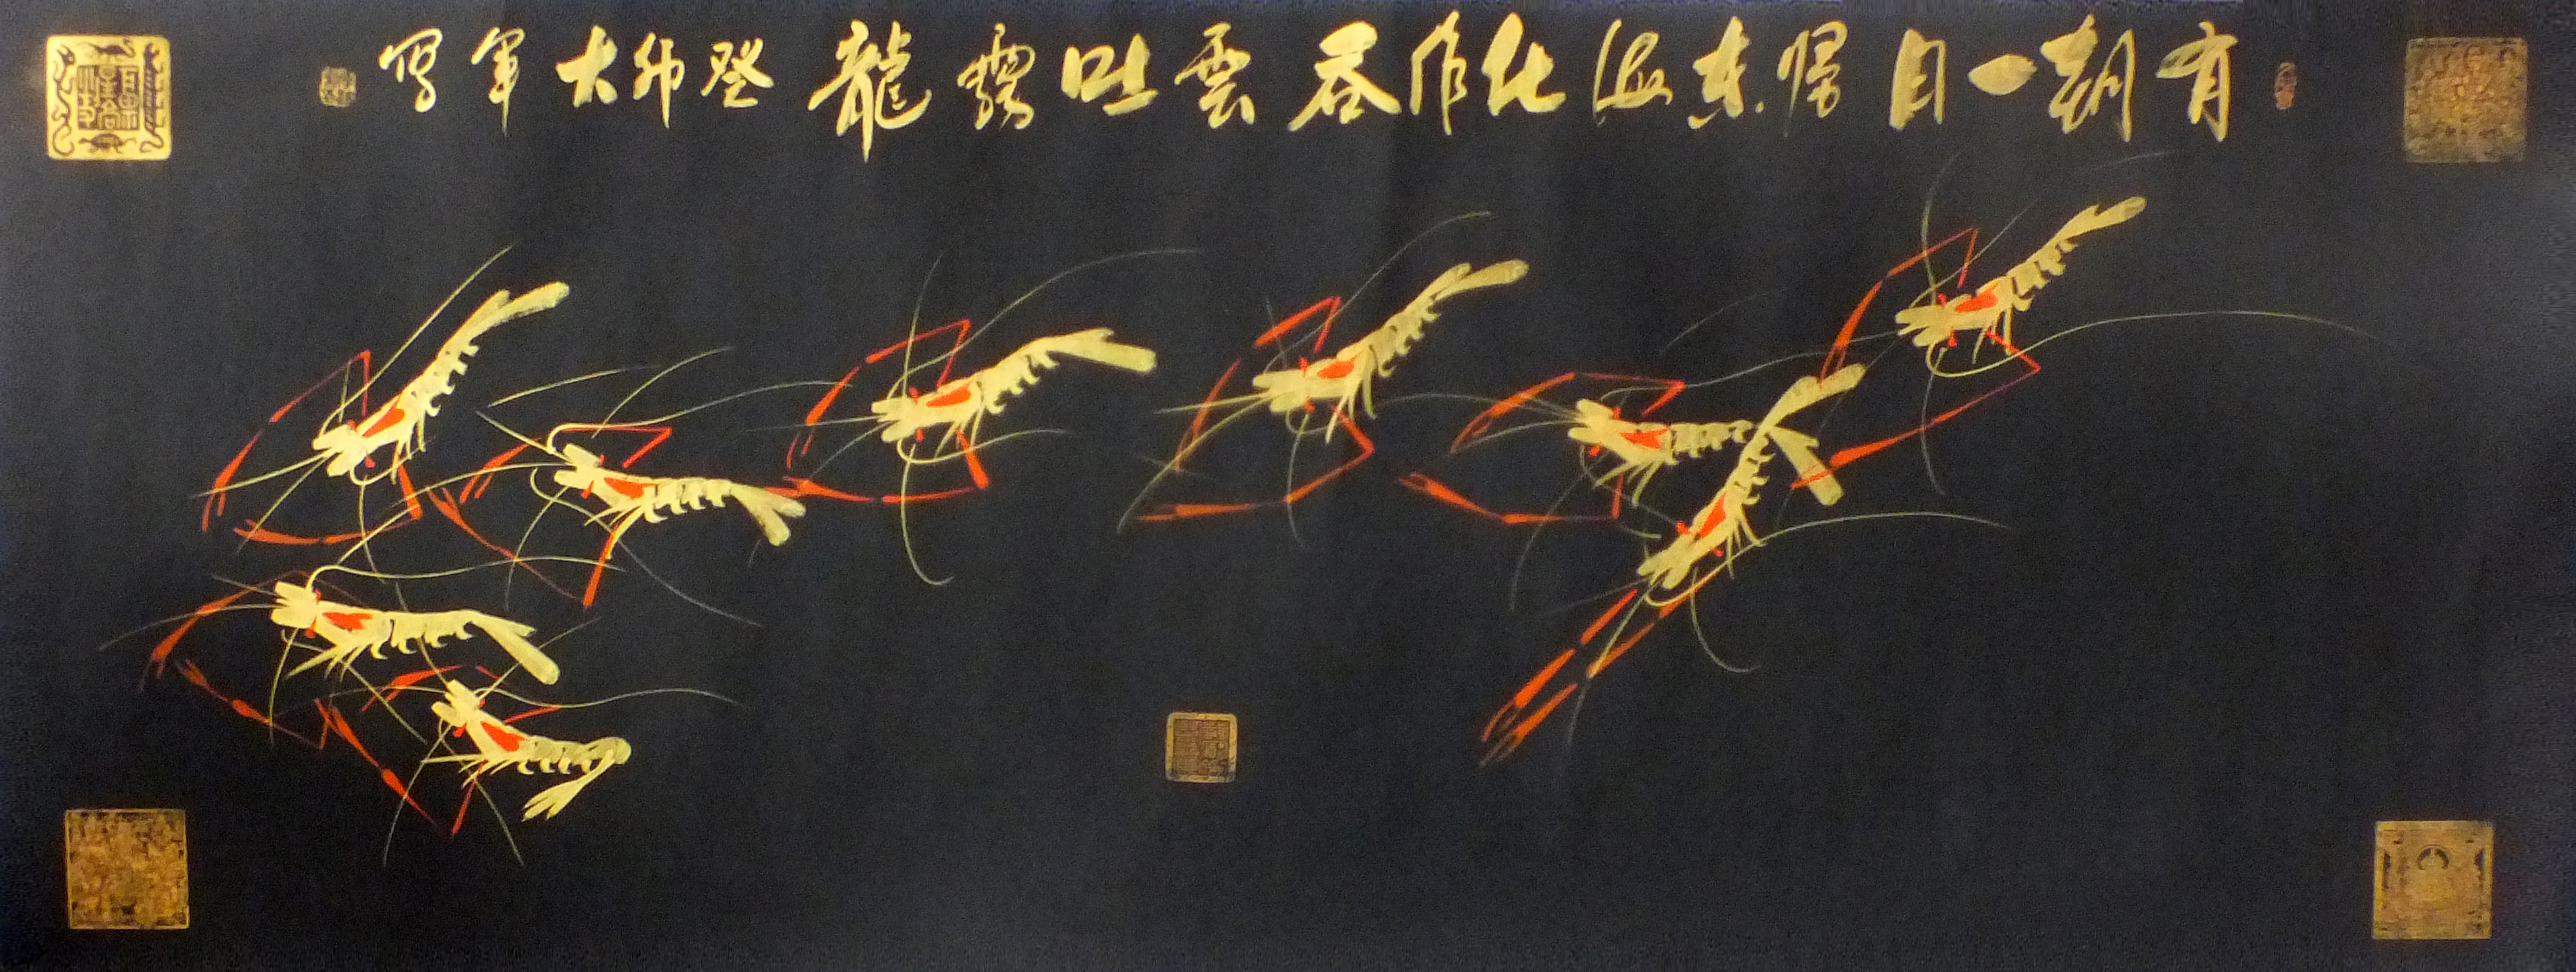 有朝一日歸東海化作吞雲吐霧龍 癸卯大軍寫